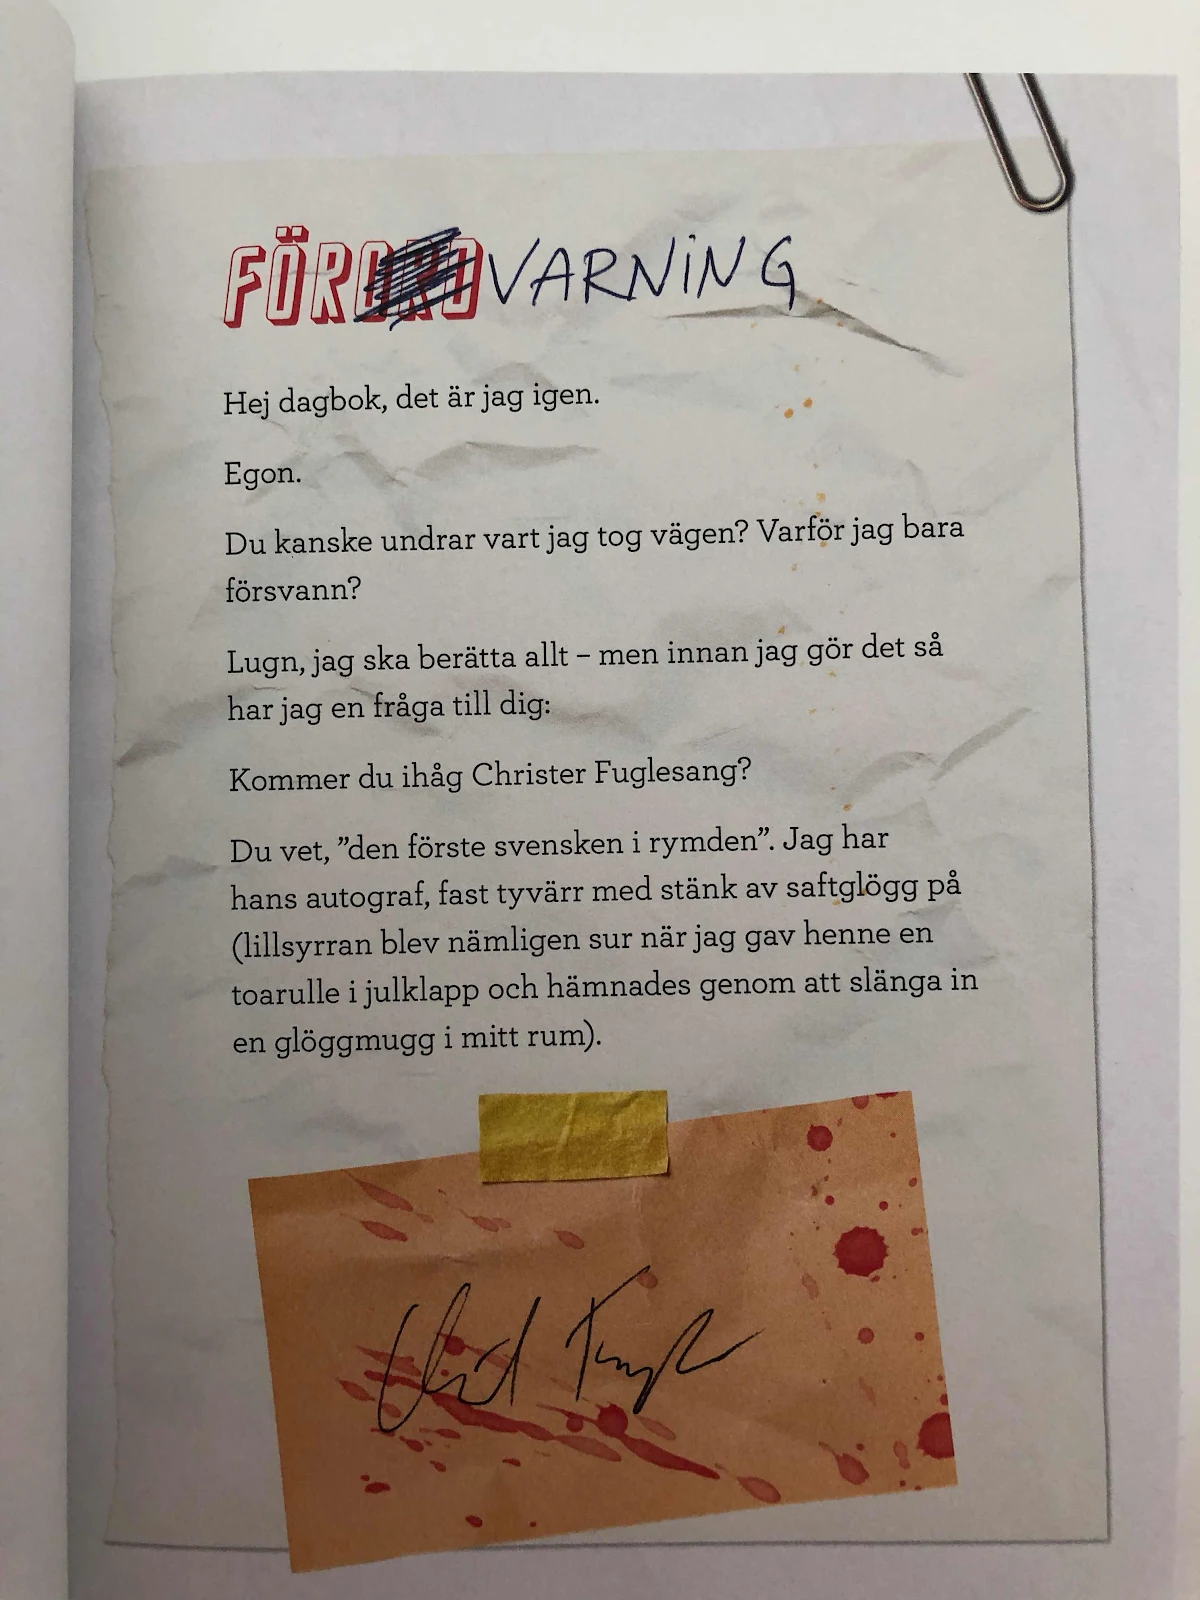 FÖRORD VARNING
Hej dagbok, det är jag igen.
Egon.
Du kanske undrar vart jag tog vägen? Varför jag bara
försvann?
Lugn, jag ska berätta allt – men innan jag gör det så
har jag en fråga till dig:
Kommer du ihåg Christer Fuglesang?
Du vet, ”den förste svensken i rymden”. Jag har
hans autograf, fast tyvärr med stänk av saftglögg på
(lillsyrran blev nämligen sur när jag gav henne en
toarulle i julklapp och hämnades genom att slänga in
en glöggmugg i mitt rum).